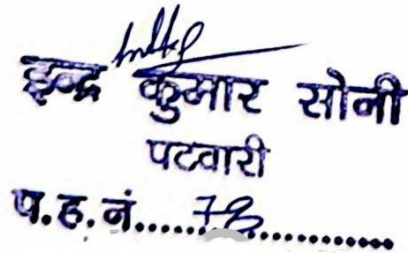 इन्द्र कुमार सोनी
पटवारी
प.ह.नं.....78..............